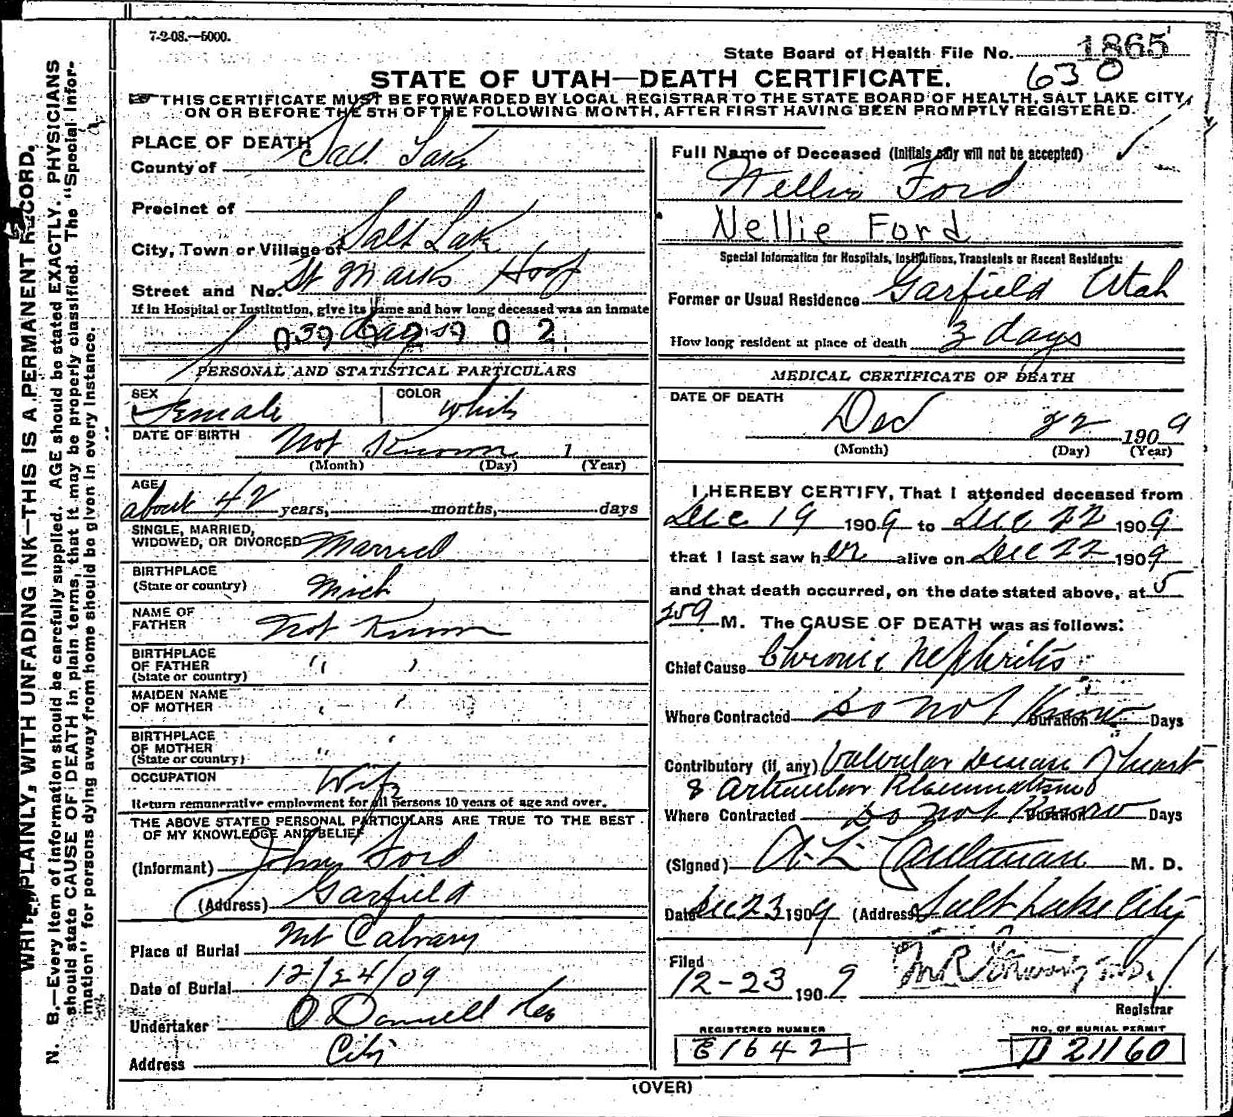 7-2-08.—5000.
State Board of Health File No. 1865
630
STATE OF UTAH—DEATH CERTIFICATE.
THIS CERTIFICATE MUST BE FORWARDED BY LOCAL REGISTRAR TO THE STATE BOARD OF HEALTH, SALT LAKE CITY,
ON OR BEFORE THE 5TH OF THE FOLLOWING MONTH, AFTER FIRST HAVING BEEN PROMPTLY REGISTERED.
WRITE PLAINLY, WITH UNFADING INK—THIS IS A PERMANENT RECORD.
N. B.—Every item of information should be carefully supplied. AGE should be stated EXACTLY. PHYSICIANS
should state CAUSE OF DEATH in plain terms, that it may be properly classified. The "Special Infor-
mation" for persons dying away from home should be given in every instance.
PLACE OF DEATH
County of Salt Lake
Precinct of
City, Town or Village of Salt Lake
Street and No. St Marks Hosp
If in Hospital or Institution, give its name and how long deceased was an inmate
3 days
039092902
PERSONAL AND STATISTICAL PARTICULARS
SEX Female COLOR White
DATE OF BIRTH Not Known 1
(Month) (Day) (Year)
AGE
about 42 years, months, days
SINGLE, MARRIED,
WIDOWED, OR DIVORCED Married
BIRTHPLACE
(State or country) Mich
NAME OF
FATHER Not Known
BIRTHPLACE
OF FATHER " "
(State or country)
MAIDEN NAME
OF MOTHER " "
BIRTHPLACE
OF MOTHER " "
(State or country)
OCCUPATION Wife
Return remunerative employment for all persons 10 years of age and over.
THE ABOVE STATED PERSONAL PARTICULARS ARE TRUE TO THE BEST
OF MY KNOWLEDGE AND BELIEF
(Informant) John Ford
(Address) Garfield
Place of Burial Mt Calvary
Date of Burial 12/24/09
Undertaker O Donnell &Co
Address City
Full Name of Deceased (Initials only will not be accepted)
Nellie Ford
Nellie Ford
Special Information for Hospitals, Institutions, Transients or Recent Residents:
Former or Usual Residence Garfield Utah
How long resident at place of death 3 days
MEDICAL CERTIFICATE OF DEATH
DATE OF DEATH
Dec 22 1909
(Month) (Day) (Year)
I HEREBY CERTIFY, That I attended deceased from
Dec 19 1909 to Dec 22 1909
that I last saw her alive on Dec 22 1909
and that death occurred, on the date stated above, at 5
M. The CAUSE OF DEATH was as follows:
Chief Cause Chronic Nephritis
Where Contracted Do not Know Duration Days
Contributory (if any) Valvular Disease of heart
& Articular Rheumatism
Where Contracted Do not Know Duration Days
(Signed) M. D.
Date Dec 23 1909 (Address) Salt Lake City
Filed
12-23 1909
Registrar
REGISTERED NUMBER
E1642
NO. OF BURIAL PERMIT
D 21160
(OVER)